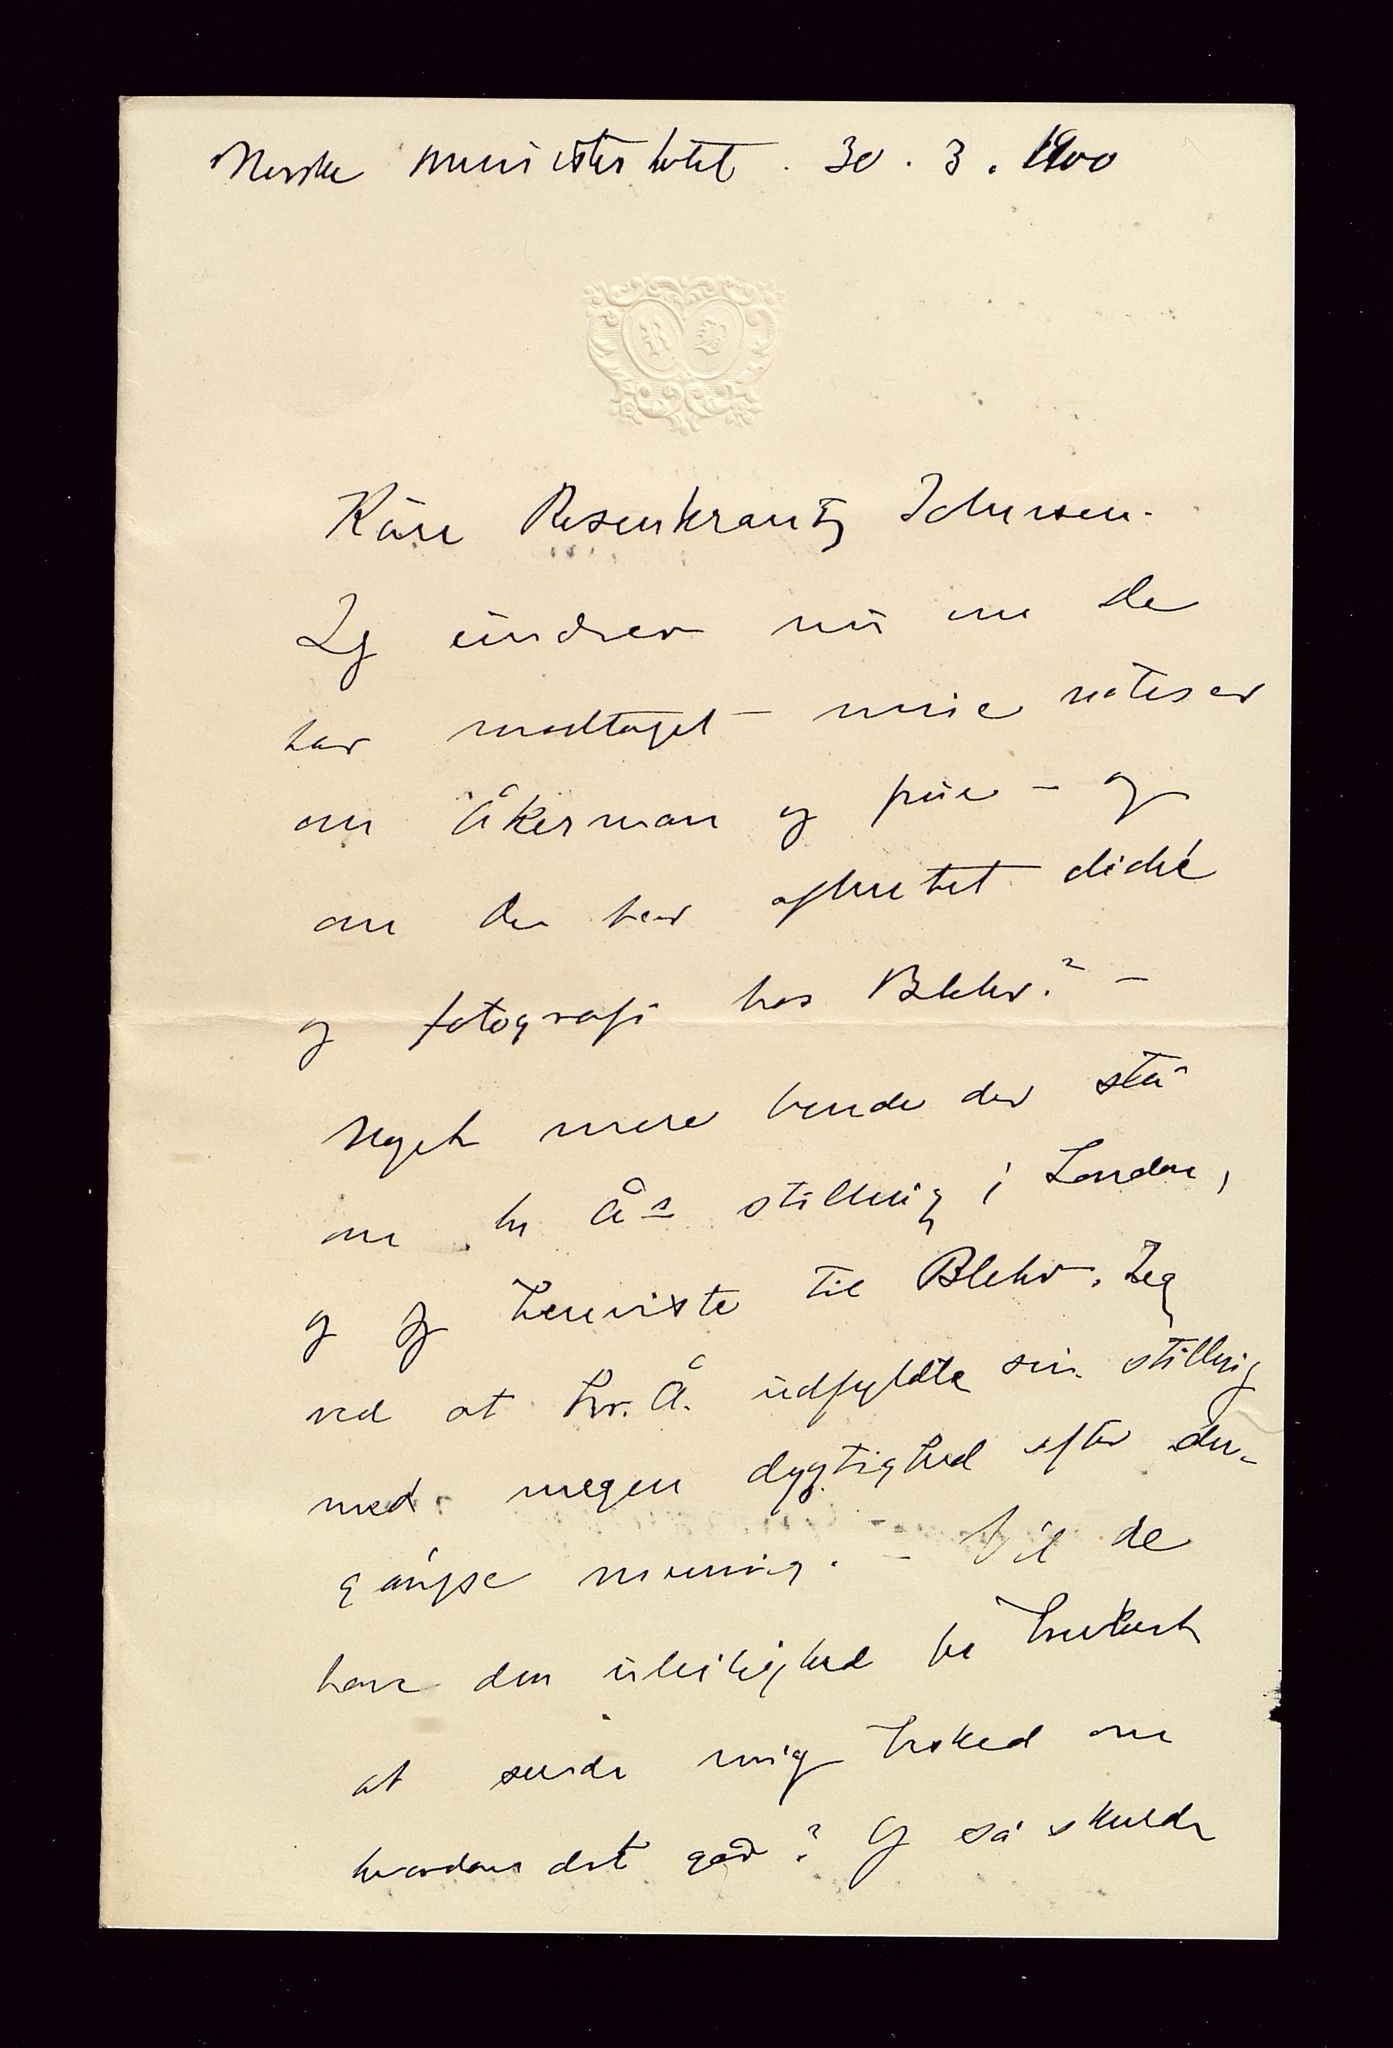 Norske ministerhotel. 30. 3. 1900
Käre Rosenkrantz Johnsen.
Jeg undrer nu om De
har modtaget mine notiser
om Åkerman og frue – og
om De har afhentet cliché
og fotografi hos Blehr? –
Noget mere burde der stå
om hr Ås stilling i London,
og jeg henviste til Blehr. Jeg
ved at hr. Å. udfyldte sin stilling
med megen dygtighed efter den
gängse mening. – Vil De
have den uleilighed på brevkort
at sende mig besked om
hvordan det går? Og så skulde